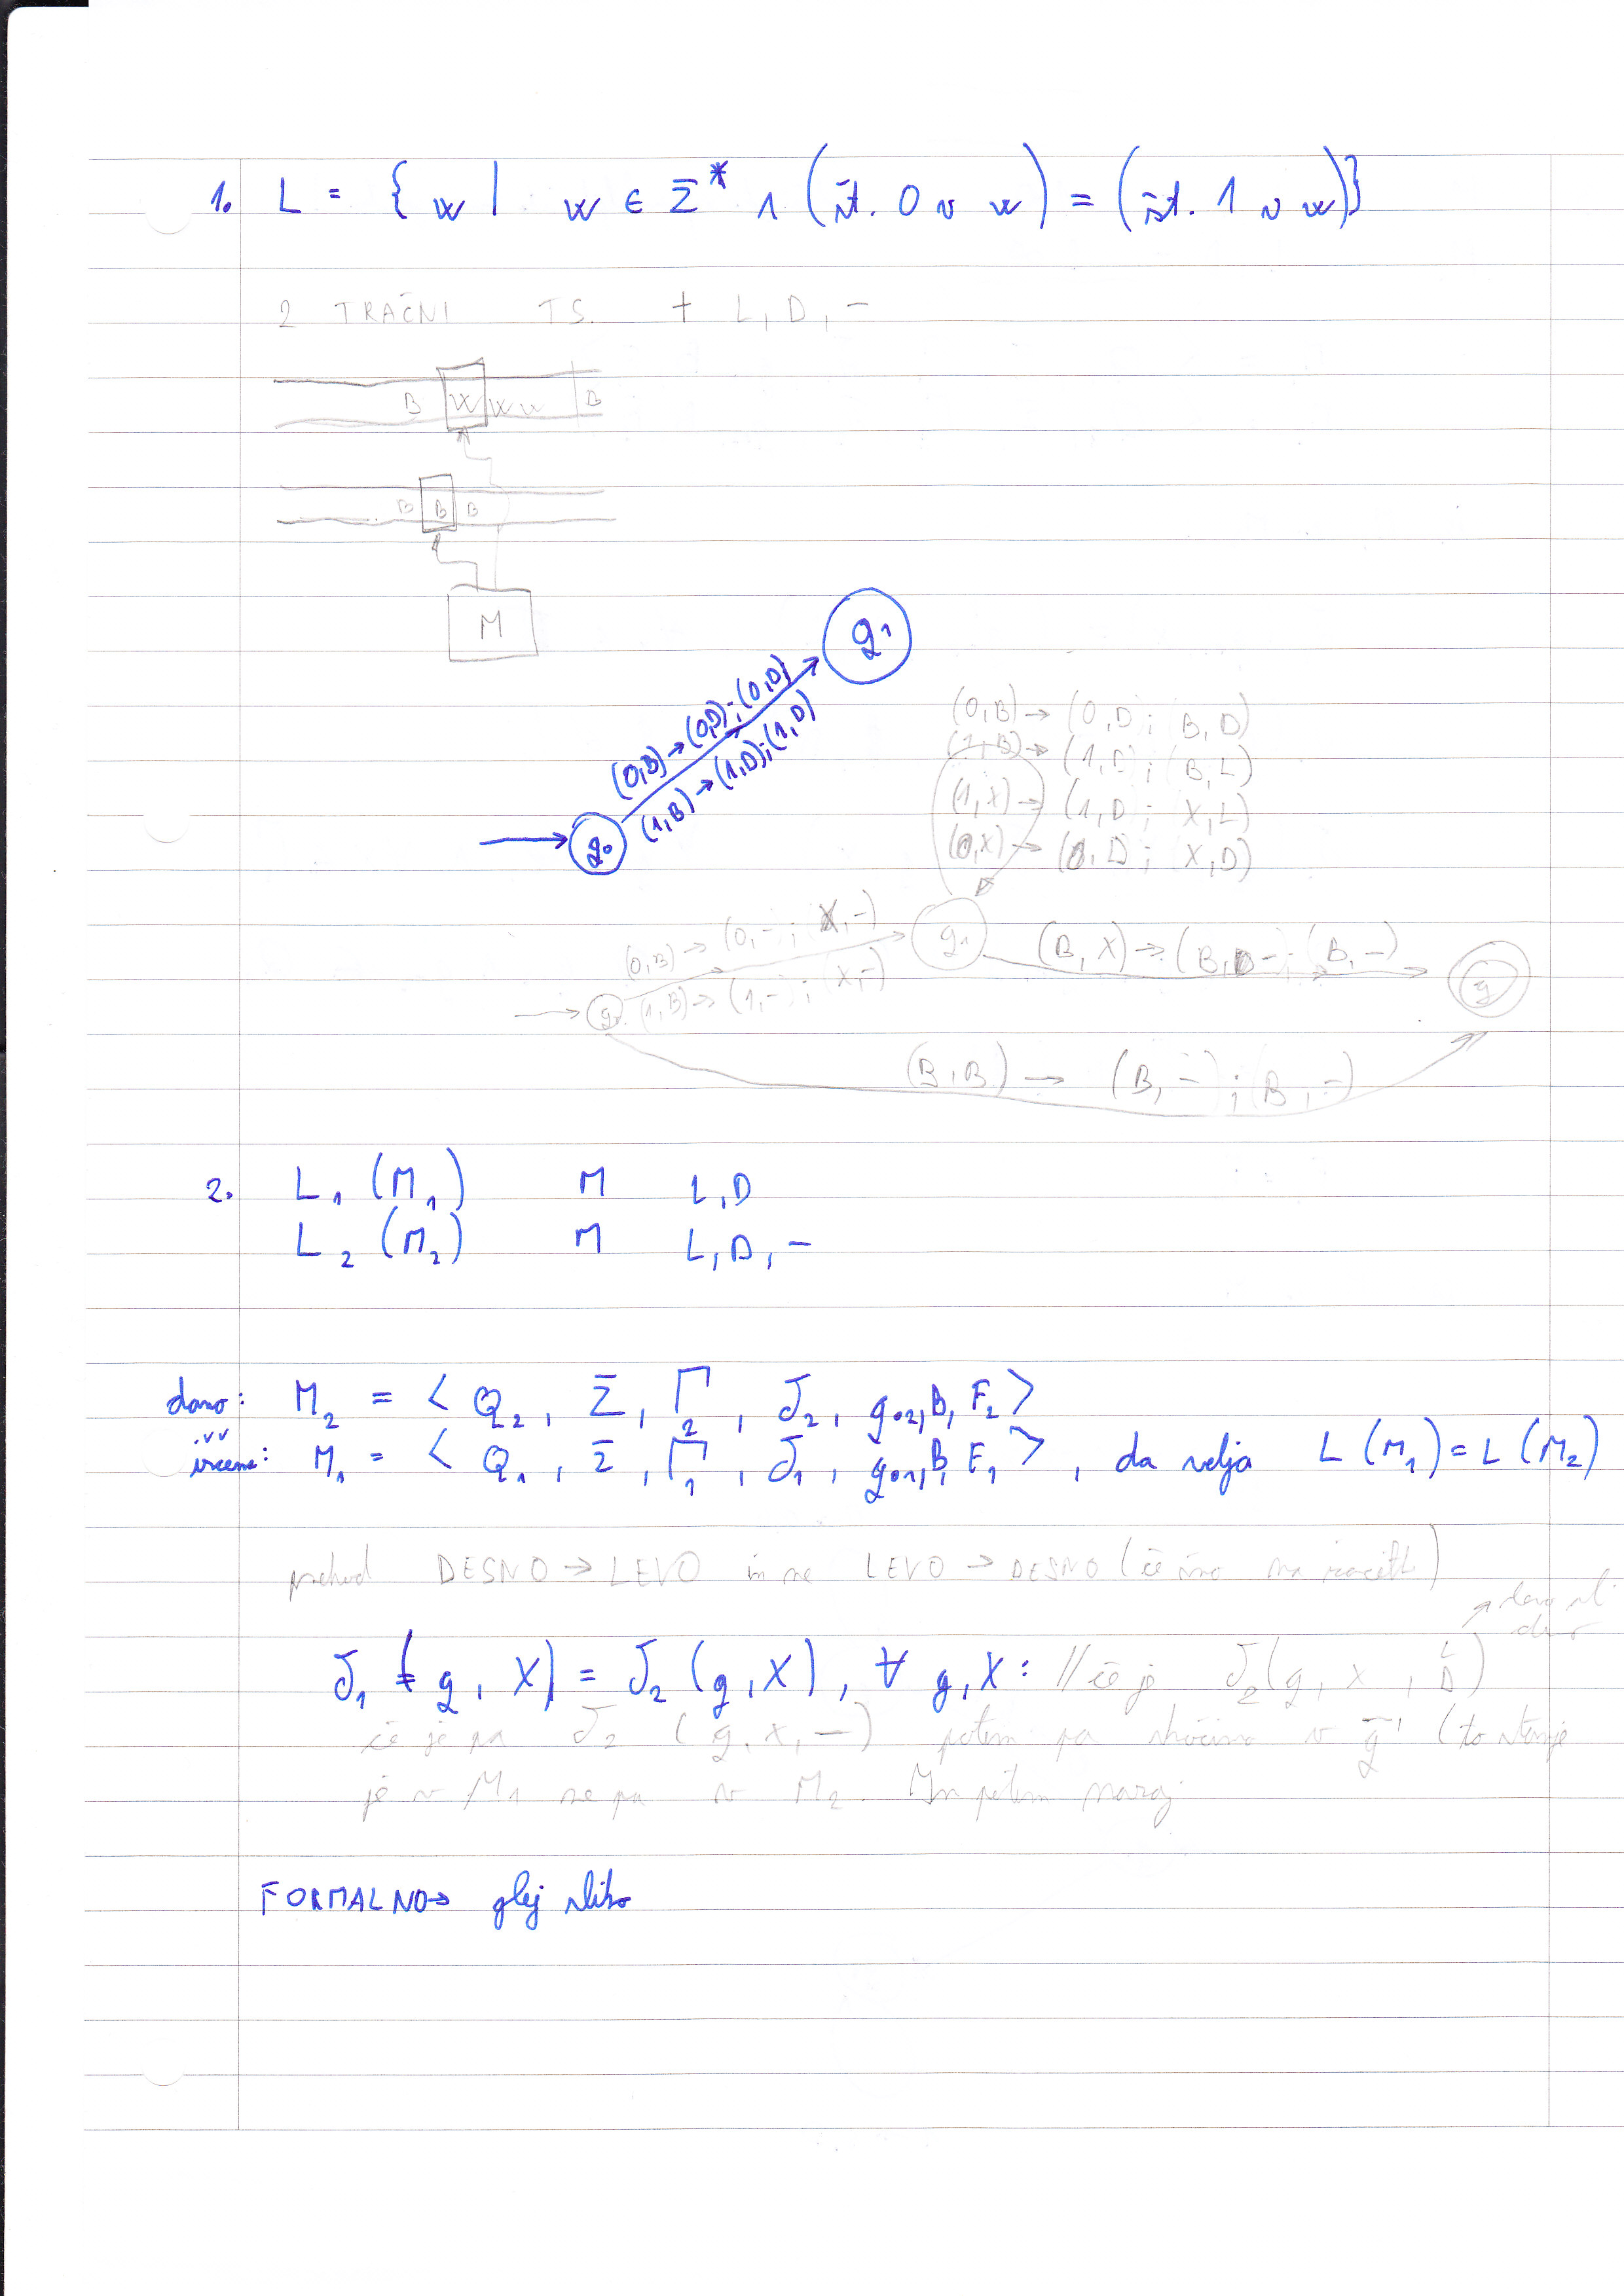 1. L = { w | w ∈ Σ* ∧ (št. 0 v w) = (št. 1 v w)}
2 TRAČNI TS. + L, D, –
B W W W B
B B B
M
q1
(0,B) → (0,D);(0,D)
(1,B) → (1,D);(1,D)
q0
(0,B) → (0,D; B,D)
(1,B) → (1,D; B,L)
(1,X) → (1,D; X,L)
(0,X) → (0,D; X,D)
(0,B) → (0,–; X,–)
q1
(B,X) → (B,–; (B,–)
q0 (1,B) → (1,–); (X,–)
q
(B,B) → (B,–);(B,–)
2. L1 (M1) M L,D
L2 (M2) M L, D, –
dano: M2 = < Q2, Σ, Γ2, δ2, q02, B, F2 >
iščemo: M1 = < Q1, Σ, Γ1, δ1, q01, B, F1 >, da velja L(M1) = L(M2)
prehod DESNO → LEVO in ne LEVO → DESNO (če smo na začetk)
δ1 (q, X) = δ2 (q, X), ∀ q, X: // če je δ2(q, x, L D)
če je pa δ2 (q, x, –) potem pa skočimo v q' (to stanje
je v M1 ne pa v M2. In potem nazaj
FORMALNO → glej sliko